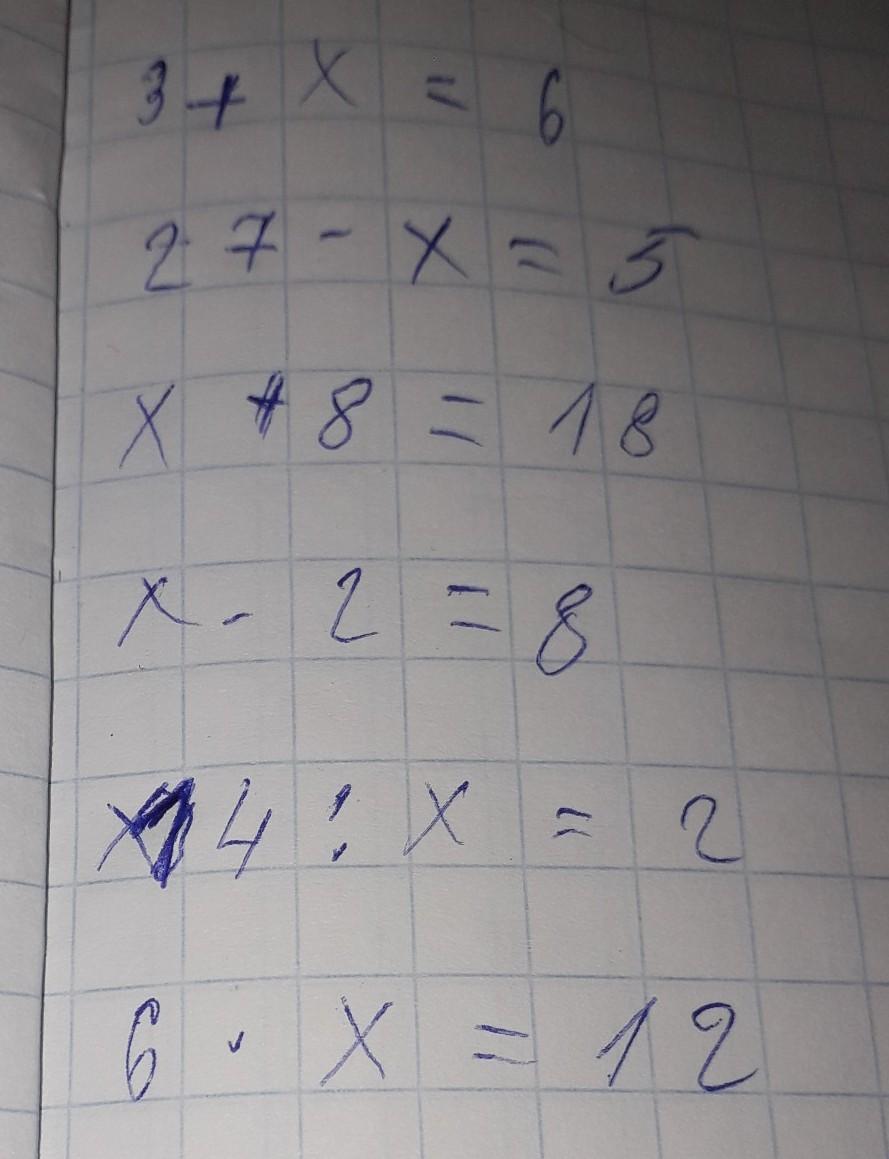 3 + x = 6
27 - x = 5
x + 8 = 18
x - 2 = 8
14 : x = 2
6 · x = 12